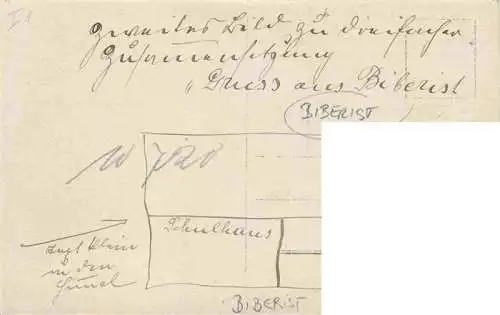 I 1
Zweites Bild zu dreifacher
Zusammensetzung
"Gruss aus Biberist
BIBERIST
10 720
Schulhaus
klein
in den
BIBERIST